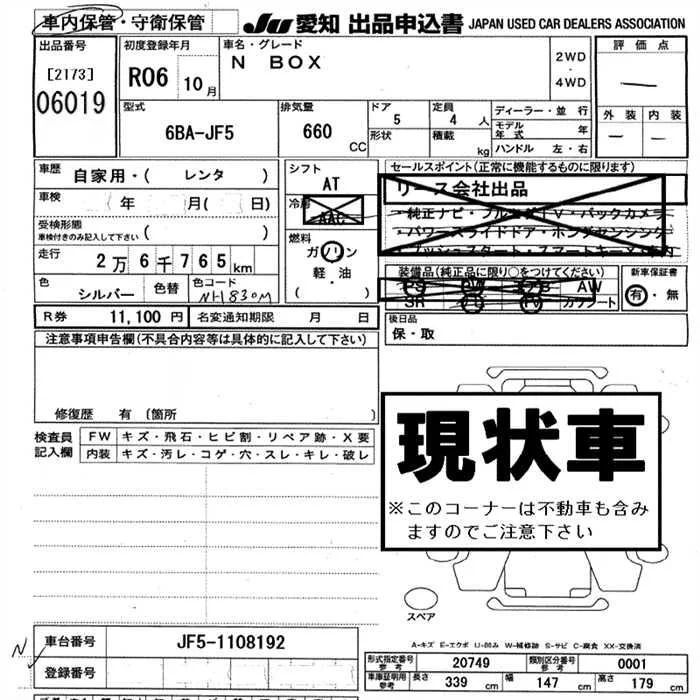 車内保管・守衛保管
JU 愛知 出品申込書 JAPAN USED CAR DEALERS ASSOCIATION
出品番号
[2173]
06019
初度登録年月
R06 10月
車名・グレード
N BOX
2WD
・
4WD
評価点
外装 内装
型式
6BA-JF5
排気量
660 CC
ドア
5
形状
定員
4 人
積載 kg
ディーラー・並行
モデル年式 年
ハンドル 左・右
車歴
自家用・( レンタ )
車検
年 月( 日)
受検形態
車検付きのみ記入して下さい ( )
走行
2万6千765km
色
シルバー
色替
色コード
NH830M
シフト
AT
冷房
AAC
燃料
ガソリン
軽・油
( )
セールスポイント(正常に機能するものに限ります)
リース会社出品
・純正ナビ・フルセグTV・バックカメラ
・パワースライドドア・ホンダセンシング
装備品(純正品に限り○をつけてください)
PS PW AW
SR TV カワシート
新車保証書
有・無
R券 11,100 円
名変通知期限 月 日
後日品
保・取
注意事項申告欄(不具合内容等は具体的に記入して下さい)
修復歴 有 〔箇所 〕
検査員
記入欄
FW キズ・飛石・ヒビ割・リペア跡・X要
内装 キズ・汚レ・コゲ・穴・スレ・キレ・破レ
現状車
※このコーナーは不動車も含み
ますのでご注意下さい
スペア
A-キズ E-エクボ U-凹み W-補修跡 S-サビ C-腐食 XX-交換済
N
車台番号
JF5-1108192
登録番号
形式指定番号
参考
20749
類別区分番号
参考
0001
車庫証明用
参考
長さ 339 cm 幅 147 cm 高さ 179 cm